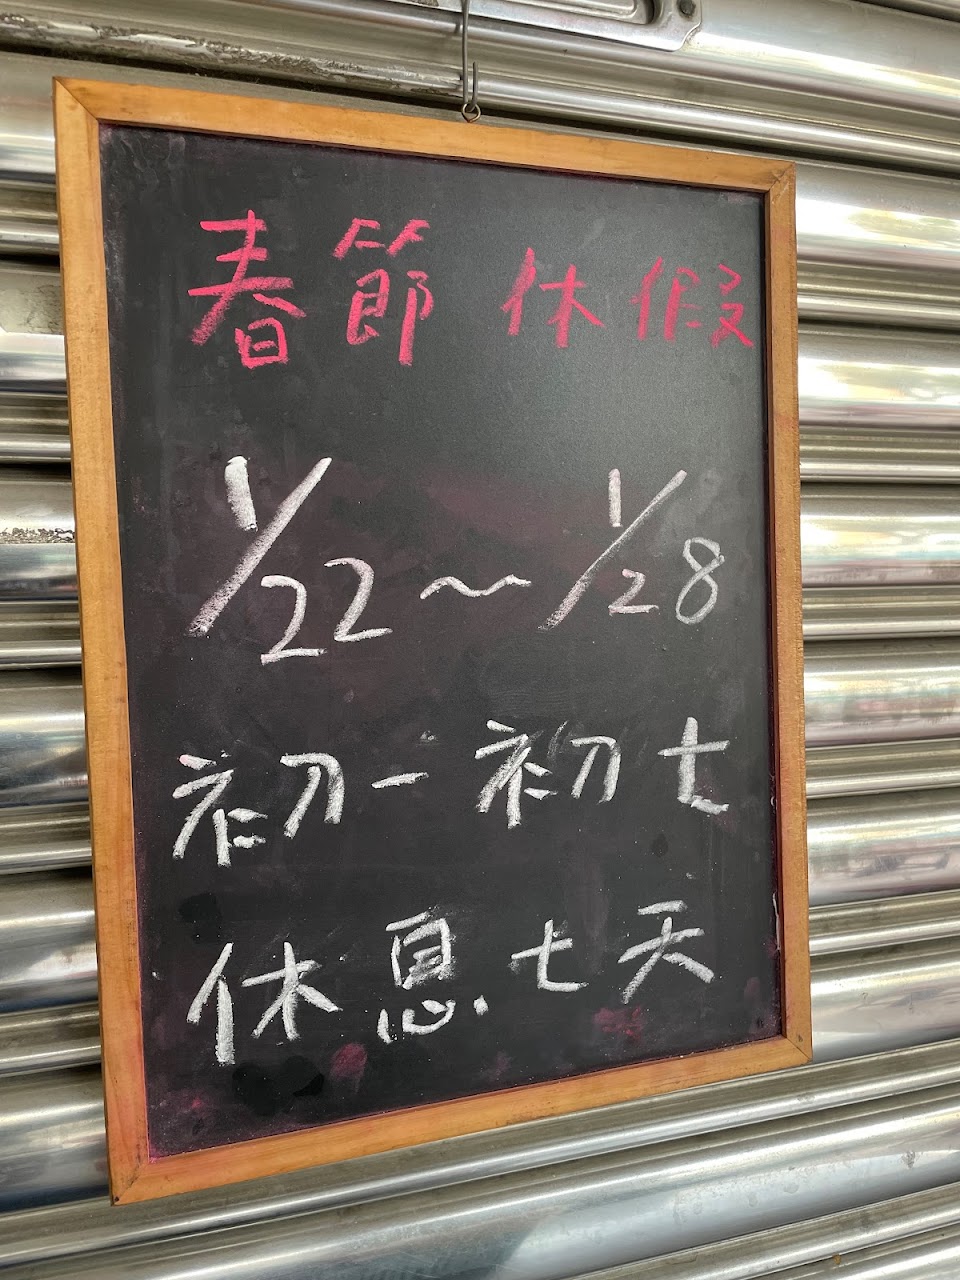 春節休假
1/22～1/28
初一初七
休息七天